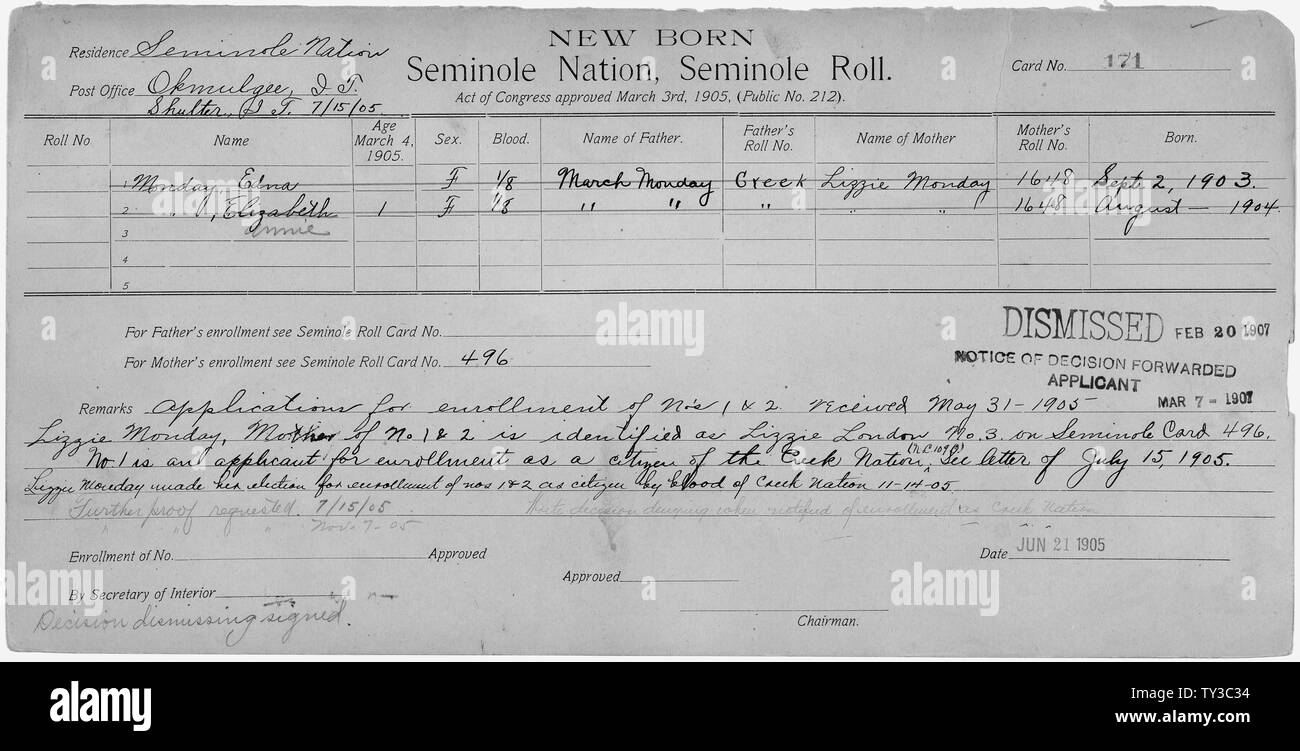 Residence Seminole Nation
NEW BORN
Seminole Nation, Seminole Roll.
Card No. 171
Post Office Okmulgee, I T.
Shulter, I T. 7/15/05
Act of Congress approved March 3rd, 1905, (Public No. 212).
Roll No Name Age March 4, 1905. Sex. Blood. Name of Father. Father's Roll No. Name of Mother Mother's Roll No. Born.
1 Monday, Edna F 1/8 March Monday Creek Lizzie Monday 1648 Sept. 2, 1903.
2 " , Elizabeth 1 F 1/8 " " " " " 1648 August — 1904.
3 Annie
4
5
For Father's enrollment see Seminole Roll Card No.
For Mother's enrollment see Seminole Roll Card No. 496
DISMISSED FEB 20 1907
NOTICE OF DECISION FORWARDED
APPLICANT MAR 7 - 1907
Remarks Applications for enrollment of No's 1 & 2 received May 31 - 1905
Lizzie Monday, Mother of No 1 & 2 is identified as Lizzie London No. 3. on Seminole Card 496.
No. 1 is an applicant for enrollment as a citizen of the Creek Nation, See letter of July 15, 1905.
Lizzie Monday made her election for enrollment of nos 1 & 2 as citizen by blood of Creek Nation 11-14-05
Further proof requested 7/15/05
" " Nov. 7-05
decision denying when notified of enrollment as Creek Nation
Enrollment of No. Approved
Date JUN 21 1905
Approved
By Secretary of Interior
Decision dismissing signed.
Chairman.
alamy
Image ID: TY3C34
www.alamy.com